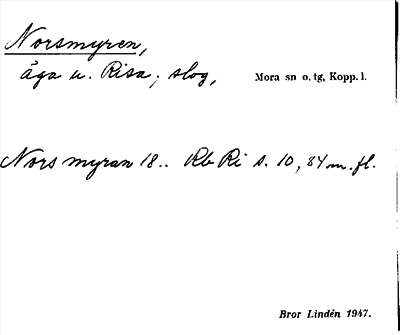 Norsmyren,
äga u. Risa; slog,
Mora sn o. tg, Kopp. l.
Norsmyran 18.. Rb Ri s. 10, 84 m. fl.
Bror Lindén 1947.